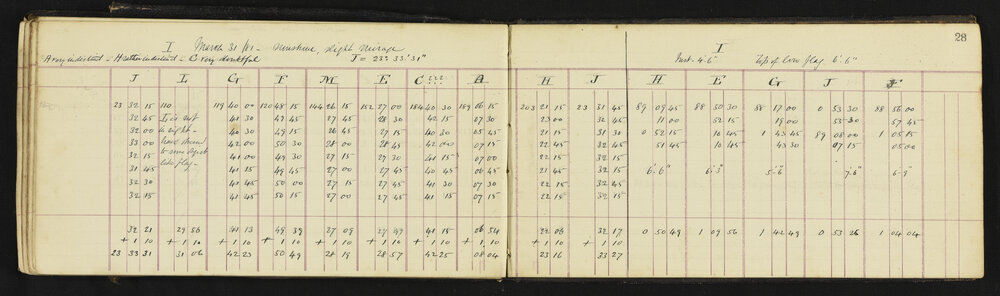 28
I March 31/81 - Sunshine, slight mirage I
A very indistinct - H rather indistinct - C very doubtful J = 23° 33' 31" Inst. 4'.6" Top of low flag 6'.6"
J L G F M E C A H J H E G J F
23 32 15 110 119 40 00 120 48 15 144 26 15 152 27 00 184 40 30 189 06 15 203 21 15 23 31 45 89 09 45 88 50 30 88 17 00 0 53 30 88 56 00
32 45 It is not 41 30 49 45 27 45 28 30 42 15 07 30 23 00 32 45 11 00 52 15 19 00 55 30 57 45
32 00 40 30 49 15 26 45 27 15 40 30 05 45 21 15 31 30 0 52 15 1 10 45 1 43 45 89 08 00 1 05 15
33 00 have them 42 00 50 30 28 00 28 45 42 00 07 15 22 45 32 45 51 45 10 45 43 30 07 15 05 00
32 15 to some 41 00 49 30 27 15 27 30 41 15 07 00 22 15 32 15
31 45 like flag - 41 15 49 45 27 00 27 45 40 45 06 45 21 45 32 15 6'.6" 6'.3" 5'.6" 7'.6" 6'.3"
32 30 41 45 50 00 27 15 27 45 41 30 07 30 22 15 32 45
32 15 41 45 50 15 27 00 27 45 41 15 07 15 22 15 32 15
32 21 29 56 41 13 49 39 27 09 27 47 41 15 06 54 22 06 32 17 0 50 49 1 09 56 1 42 49 0 53 26 1 04 04
+1 10 +1 10 +1 10 +1 10 +1 10 +1 10 +1 10 +1 10 +1 10 +1 10
23 33 31 31 06 42 23 50 49 28 19 28 57 42 25 08 04 23 16 33 27